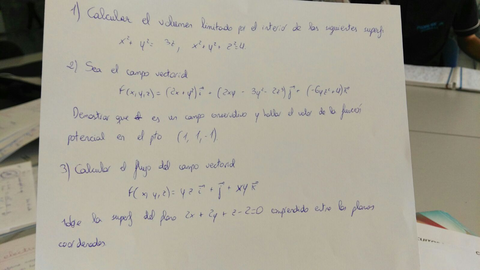 1) Calcular el volumen limitado por el interior de las siguientes superf.
x² + y² = 3z, x² + y² + z² = 4
2) Sea el campo vectorial
F(x,y,z) = (2x+y²)i + (2xy - 3y² - 2z³)j + (-6yz² + 4)k
Demostrar que es un campo conservativo y hallar el valor de la función
potencial en el pto (1, 1, -1)
3) Calcular el flujo del campo vectorial
F(x,y,z) = yz i + j + xy k
sobre la superf. del plano 2x + 2y + z - 2 = 0 comprendido entre los planos
coordenados